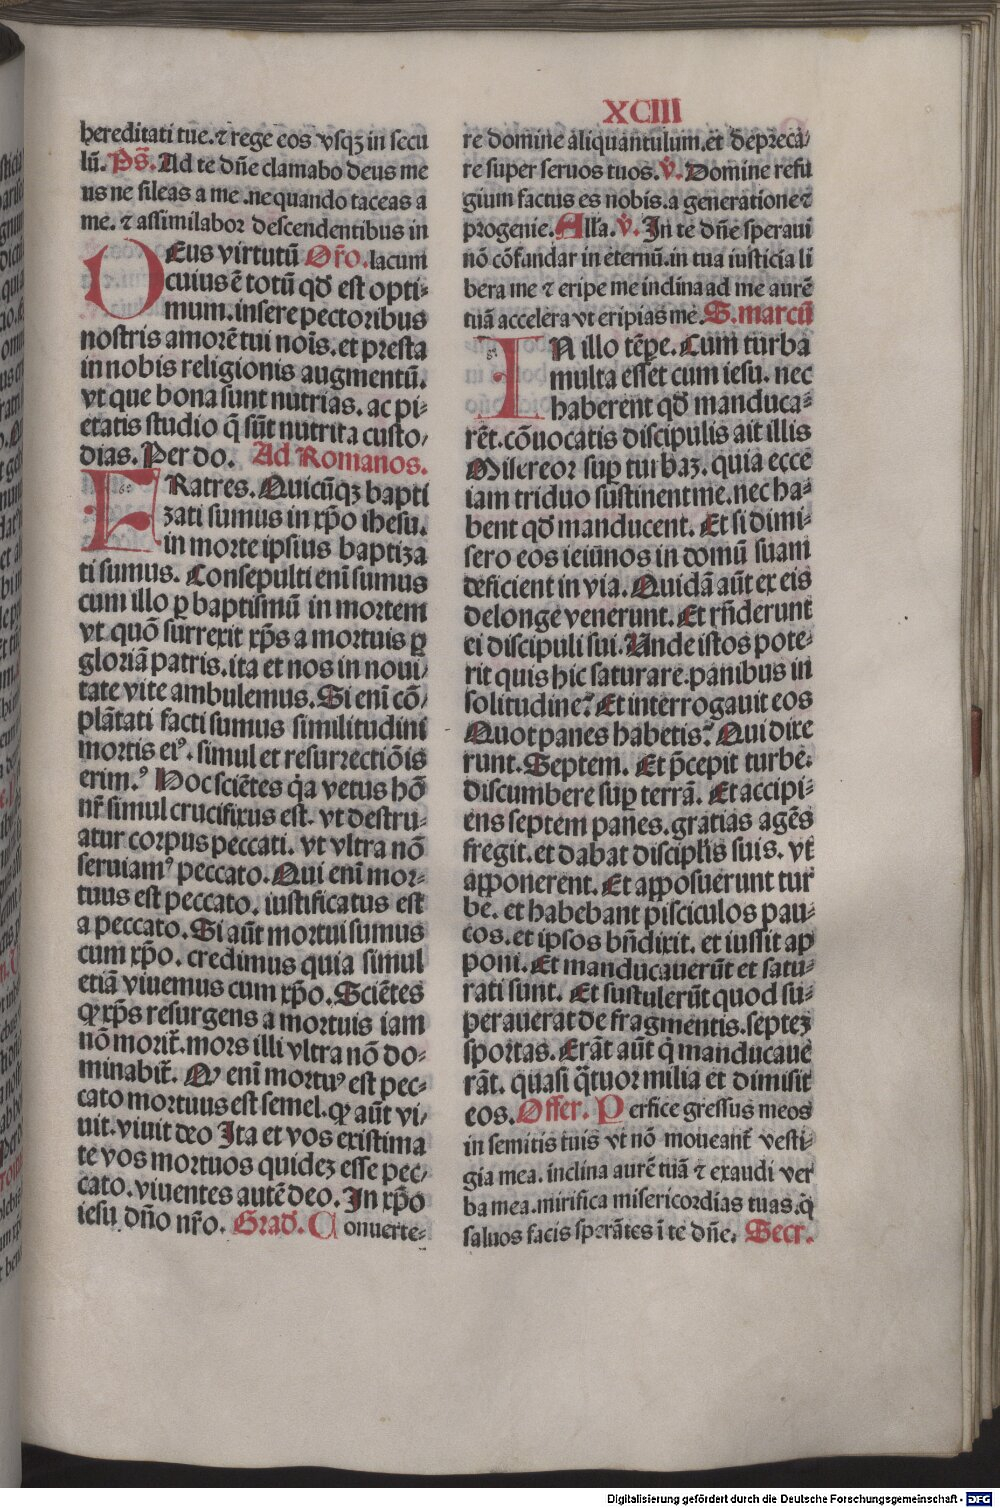 XCIII
hereditati tue. ⁊ rege eos vsqꝫ in secu
lũ. Ps̃. Ad te dñe clamabo deus me
us ne sileas a me .ne quando taceas a
me. ⁊ assimilabor descendentibus in
DEus virtutũ Or̃o. lacum
cuius ẽ totũ qḋ est opti-
mum. insere pectoribus
nostris amorẽ tui noĩs. et presta
in nobis religionis augmentũ.
vt que bona sunt nutrias. ac pi-
etatis studio q̃ sũt nutrita custo-
dias. Per do. Ad Romanos.
FRatres. Quicũqꝫ bapti
zati sumus in xp̃o ihesu.
in morte ipsius baptiza
ti sumus. Consepulti enĩ sumus
cum illo ꝑ baptismũ in mortem
vt quõ surrexit xp̃s a mortuis ꝑ
gloriã patris. ita et nos in noui-
tate vite ambulemus. Si enĩ cõ-
plãtati facti sumus similitudini
mortis eiꝰ. simul et resurrectiõis
erimꝰ. Hoc sciẽtes q̇a vetus hõ
nr̃ simul crucifixus est. vt destru-
atur corpus peccati. vt vltra nõ
seruiamꝰ peccato. Qui enĩ mor-
tuus est peccato. iustificatus est
a peccato. Si aũt mortui sumus
cum xp̃o. credimus quia simul
etiã viuemus cum xp̃o. Sciẽtes
ꝙ xp̃s resurgens a mortuis iam
nõ morit̃. mors illi vltra nõ do-
minabit̃. Ꝙ enĩ mortuꝰ est pec-
cato mortuus est semel. ꝙ aũt vi-
uit. viuit deo Ita et vos existima
te vos mortuos quideꝫ esse pec-
cato. viuentes autẽ deo. In xp̃o
iesu dño nr̃o. Grad̃. Conuerte-
re domine aliquantulum. et dep̃reca-
re super seruos tuos. v̇. Domine refu
gium factus es nobis. a generatione ⁊
progenie. Alla. v̇. In te dñe speraui
nõ cõfandar in eternũ. in tua iusticia li
bera me ⁊ eripe me inclina ad me aurẽ
tuã accelera vt eripias me. S. marcũ
IN illo tẽꝑe. Cum turba
multa esset cum iesu. nec
haberent qḋ manduca-
rẽt. cõuocatis discipulis ait illis
Misereor suꝑ turbaꝫ. quia ecce
iam triduo sustinent me. nec ha-
bent qḋ manducent. Et si dimi-
sero eos ieiunos in domũ suam
deficient in via. Quidã aũt ex eis
de longe venerunt. Et rñderunt
ei discipuli sui. Unde istos pote-
rit quis hic saturare. panibus in
solitudine? Et interrogauit eos
Quot panes habetis? Qui dixe
runt. Septem. Et p̃cepit turbe.
discumbere suꝑ terrã. Et accipi-
ens septem panes. gratias agẽs
fregit. et dabat discipl̃is suis. vt
apponerent. Et apposuerunt tur
be. et habebant pisciculos pau-
cos. et ipsos bñdixit. et iussit ap
poni. Et manducauerũt et satu-
rati sunt. Et sustulerũt quod su-
perauerat de fragmentis. septeꝫ
sportas. Erãt aũt q̇ manducaue
rãt. quasi q̃tuor milia et dimisit
eos. Offer. Perfice gressus meos
in semitis tuis vt nõ moueant̃ vesti-
gia mea. inclina aurẽ tuã ⁊ exaudi ver
ba mea. mirifica misericordias tuas. q̇
saluos facis sperãtes ĩ te dñe. Secr.
Digitalisierung gefördert durch die Deutsche Forschungsgemeinschaft - DFG